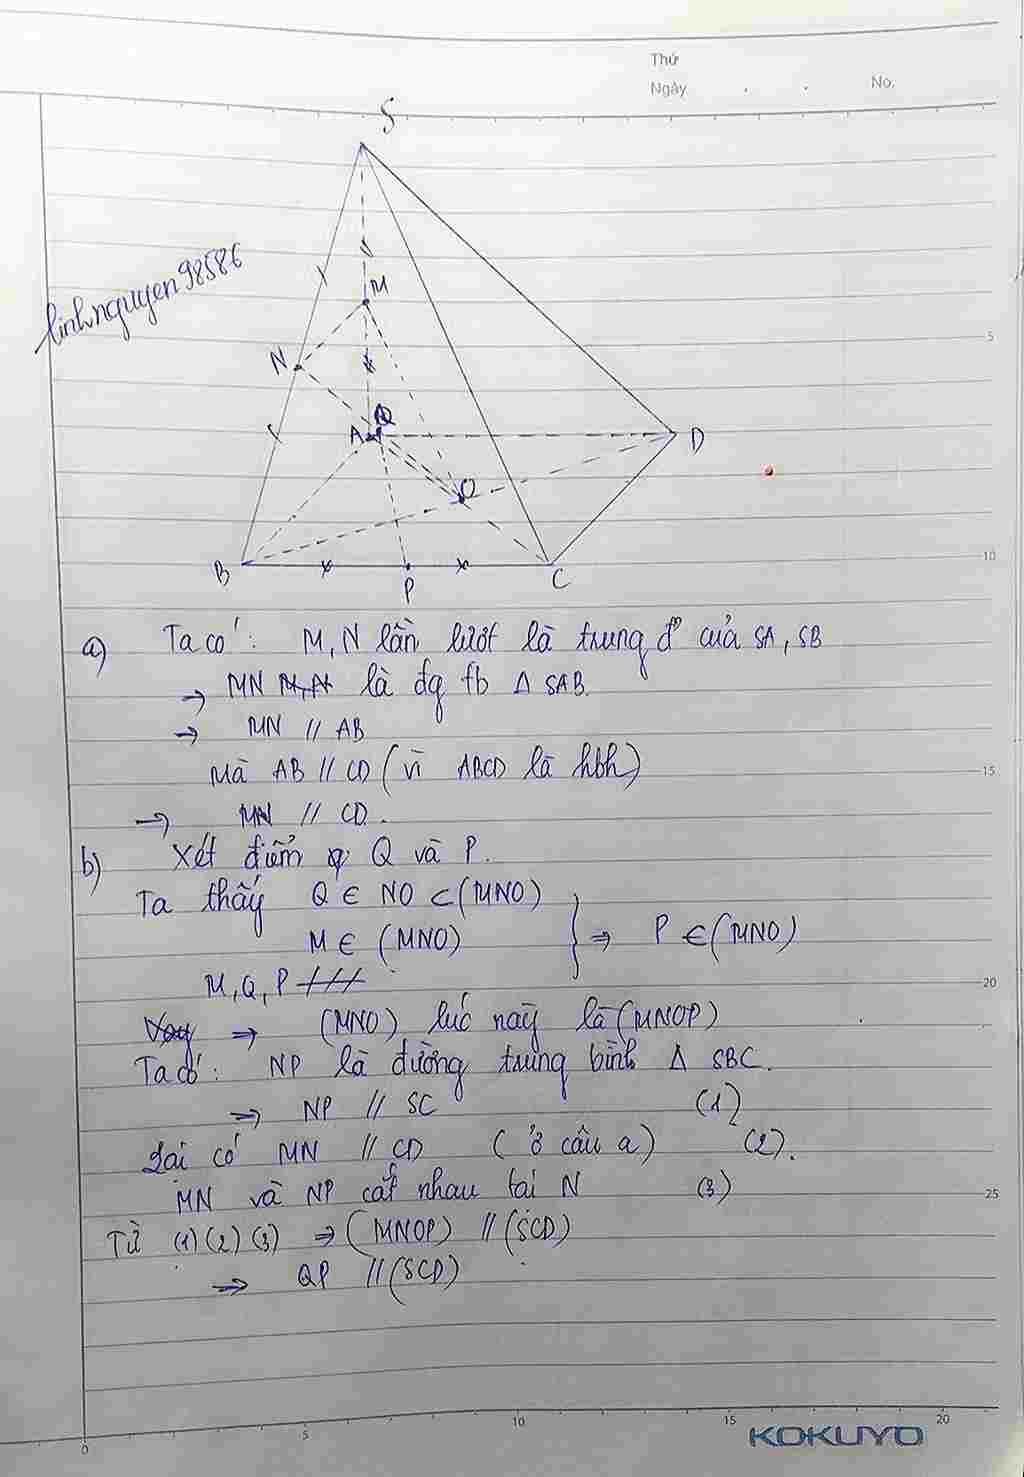 Thứ
Ngày . . No.
S
linhnguyen98586
M
N
5
A Q
D
O
10
B
P
C
a) Ta có: M, N lần lượt là trung đ² của SA, SB
→ MN M,N là đg tb Δ SAB.
→ MN // AB
Mà AB // CD (vì ABCD là hbh)
15
→ MN // CD.
b) Xét điểm Q và P.
Ta thấy Q ∈ NO ⊂ (MNO)
M ∈ (MNO) } ⇒ P ∈ (MNO)
M, Q, P
20
Vay ⇒ (MNO) lúc này là (MNOP)
Ta có: NP là đường trung bình Δ SBC.
⇒ NP // SC (1)
Lại có MN // CD (ở câu a) (2).
MN và NP cắt nhau tại N (3)
25
Từ (1) (2) (3) ⇒ (MNOP) // (SCD)
⇒ QP // (SCD)
0 5 10 15 20
KOKUYO